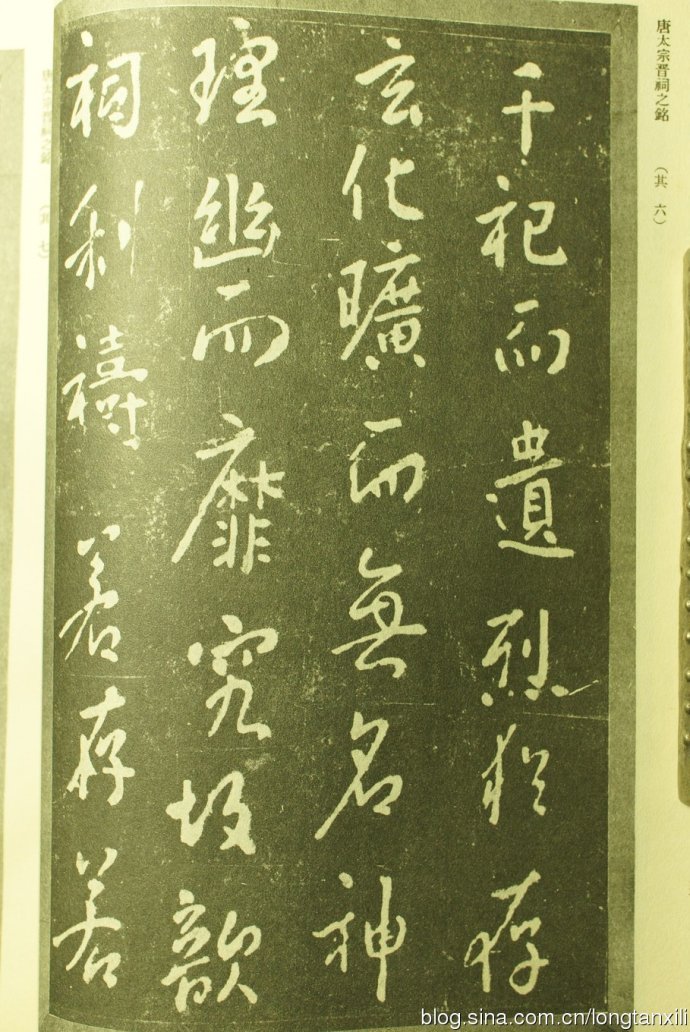 唐太宗晋祠之銘 (其六)
千祀而遺烈猶存
玄化曠而無名神
理幽而靡究故歆
祠利禱若存若
唐太宗晋祠之銘 (其七)
blog.sina.com.cn/longtanxilu